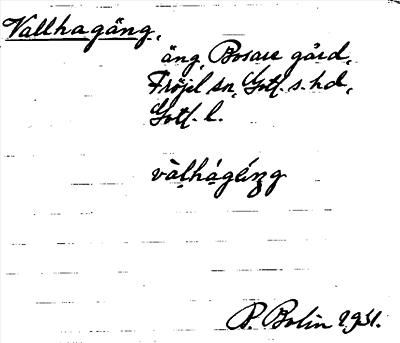 Vallhagäng,
äng, Bosarve gård,
Fröjel sn, Gotl. s. hd,
Gotl. l.
vàlhágéng
P. Bolin 1931.